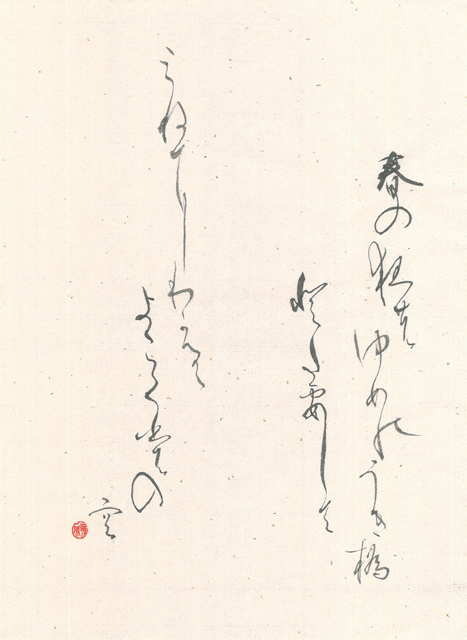 春の夜のゆめのうき橋
とたえして
みねにわかるゝ
よこくもの
空